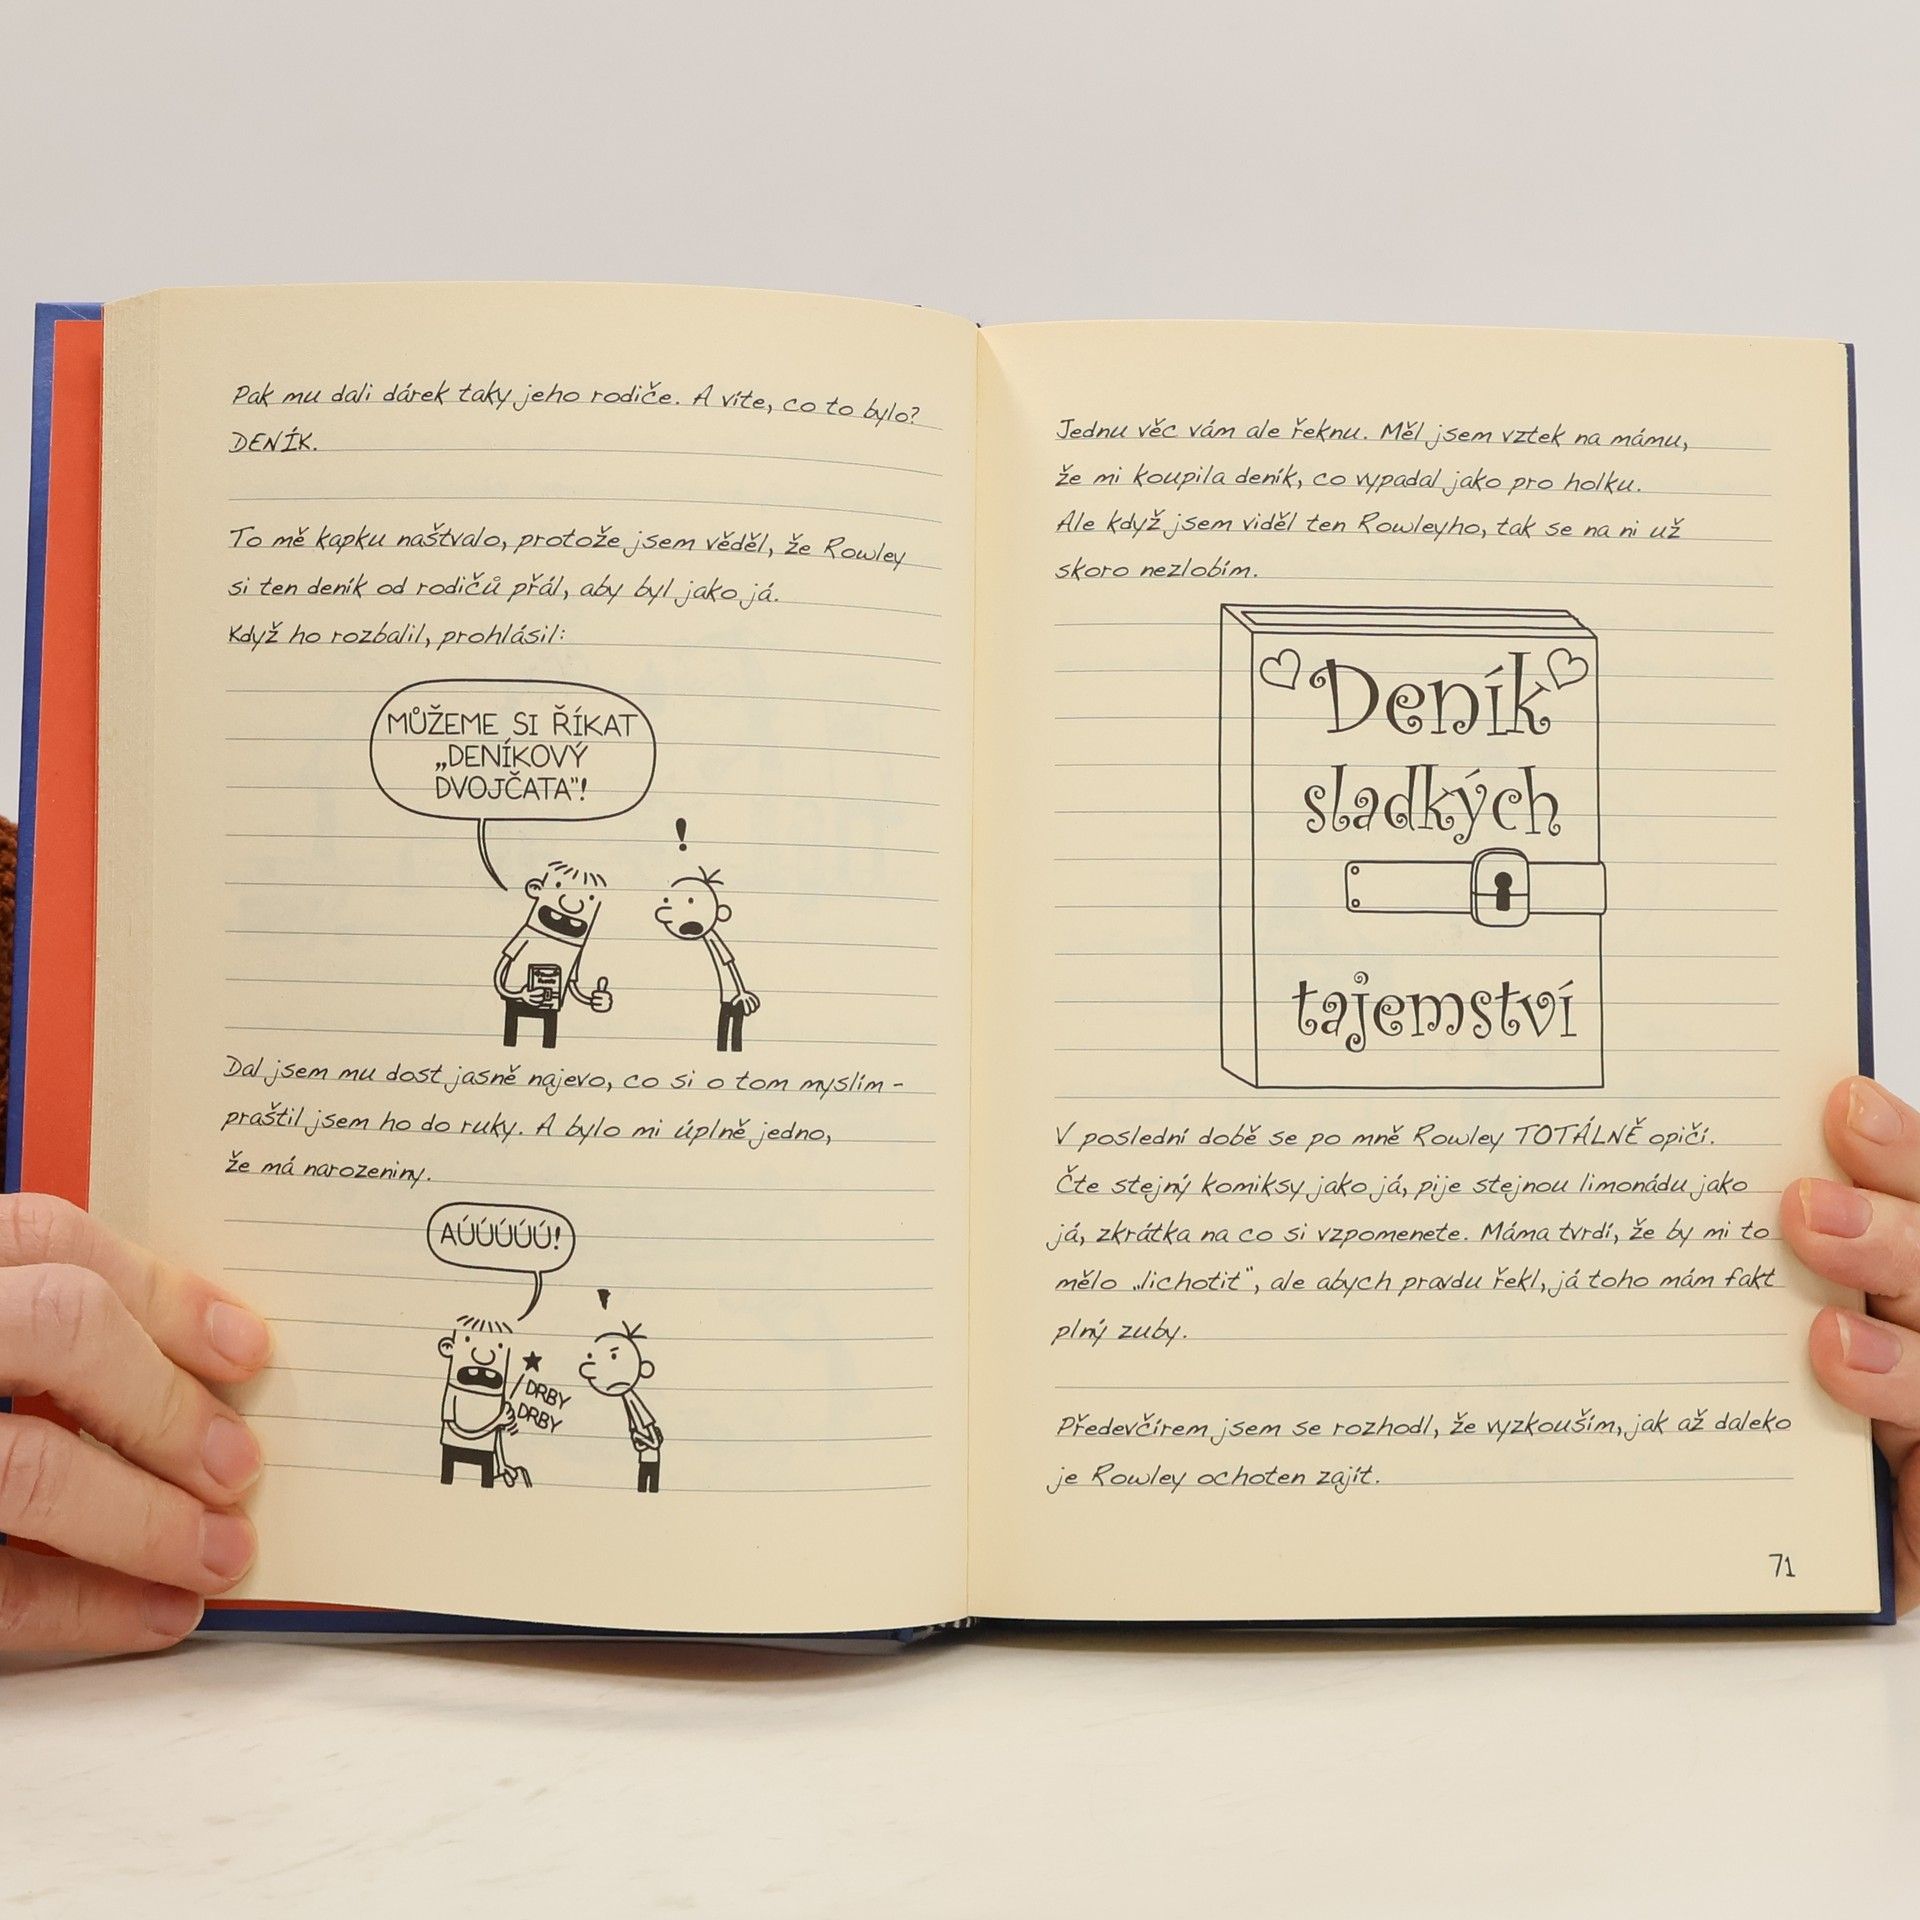 Pak mu dali dárek taky jeho rodiče. A víte, co to bylo?
DENÍK.
To mě kapku naštvalo, protože jsem věděl, že Rowley
si ten deník od rodičů přál, aby byl jako já.
Když ho rozbalil, prohlásil:
MŮŽEME SI ŘÍKAT
„DENÍKOVÝ
DVOJČATA"!
!
Dal jsem mu dost jasně najevo, co si o tom myslím –
praštil jsem ho do ruky. A bylo mi úplně jedno,
že má narozeniny.
AÚÚÚÚÚ!
DRBY
DRBY
Jednu věc vám ale řeknu. Měl jsem vztek na mámu,
že mi koupila deník, co vypadal jako pro holku.
Ale když jsem viděl ten Rowleyho, tak se na ni už
skoro nezlobím.
Deník
sladkých
tajemství
V poslední době se po mně Rowley TOTÁLNĚ opičí.
Čte stejný komiksy jako já, pije stejnou limonádu jako
já, zkrátka na co si vzpomenete. Máma tvrdí, že by mi to
mělo „lichotit", ale abych pravdu řekl, já toho mám fakt
plný zuby.
Předevčírem jsem se rozhodl, že vyzkouším, jak až daleko
je Rowley ochoten zajít.
71